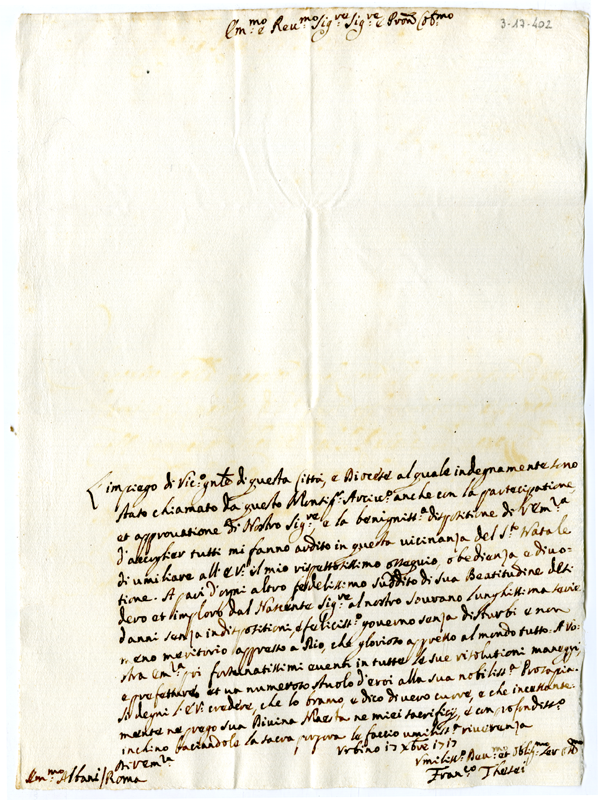 Em.mo e Reu.mo Sig.re Sig.re e Pron Col.mo
3-17-402
L'impiego di Vic.o gnte di questa Città, e Diocese al quale indegnamente sono
stato chiamato da questo Monsig.r Arciu.o anche con la partecipatione,
et approuatione di Nostro Sig.re e la benigniss.a dispositione di V Em.za
d'accoglier tutti mi fanno ardito in questa vicinanza del S.to Natale
di umiliare all' E V. il mio rispettosissimo ossequio, obedienza e diuo-
tione. A pari d'ogni altro fedelissimo suddito di Sua Beatitudine desi
dero et imploro dal Nascente Sig.re al nostro Sourano lunghissima serie
d'anni senza indispositioni, e feliciss.o gouerno senza disturbi e non
meno meritorio appresso a Dio, che glorioso appresso al mondo tutto. A Vo-
stra Em.za poi fortunatissimi euenti in tutte le sue risolutioni maneggi
e prefetture, et un numeroso stuolo d'eroi alla sua nobiliss.a Prosapia.
Si degni l'E.V. credere, che lo bramo, e dico di uero cuore, e che incessante-
mente ne prego Sua Diuina Maestà ne miei sacrificij, e con profondiss.o
inchino baciandole la sacra porpora le faccio umiliss.a riuerenza
Di V Em.za
Vrbino 17 Xbre 1717
Vmiliss.o Deu.mo et Obblig.mo Ser
Em.mo Albani / Roma
Fran.co Thesei